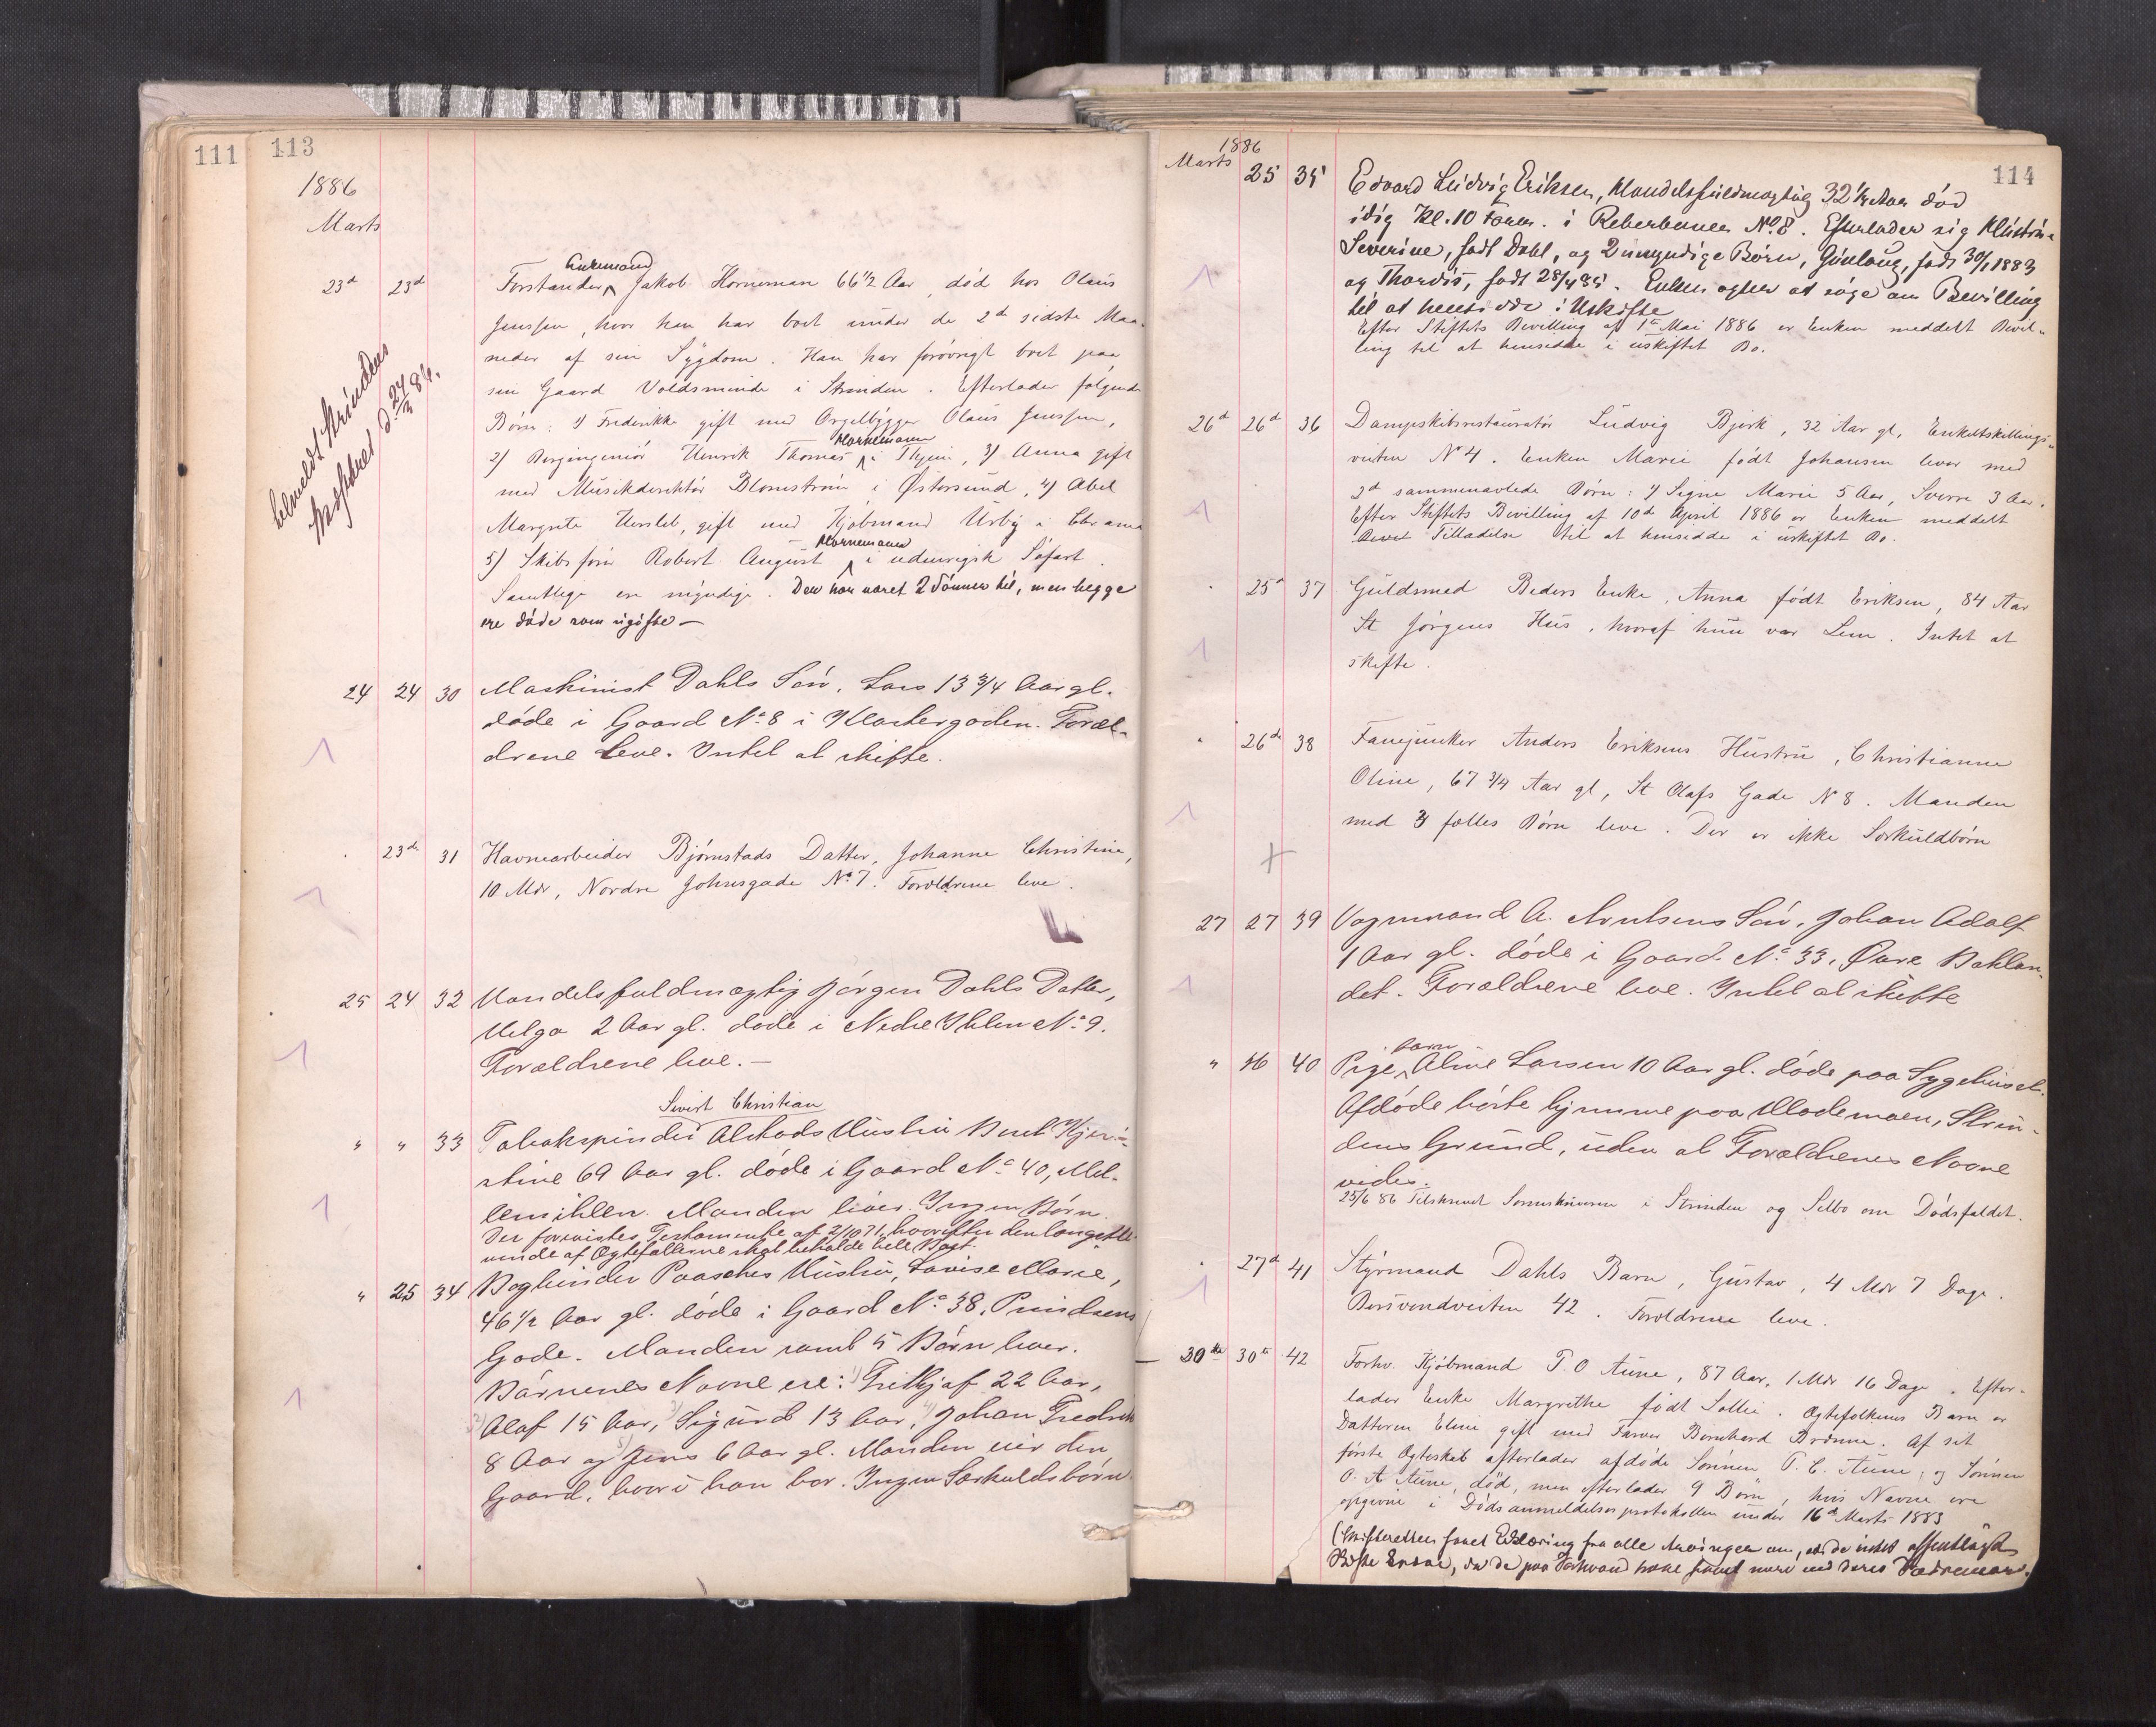 111 113
1886
Marts
23d 23d Forstander Enkemand Jakob Horneman 66 1/2 Aar, død hos Olaus
Jenssen, hvor han har boet under de 2de sidste Maa-
neder af sin Sygdom. Han har forøvrigt boet paa
sin Gaard Voldsminde i Strinden. Efterlader følgende
Børn: 1) Frederikke gift med Orgelbygger Olaus Jenssen,
2) Bergingeniør Henrik Thomas Hornemann i , 3) Anna gift
med Musikdirektør Blomstrøm i Østersund, 4) Abel
Margrete Herslel, gift med Kjøbmand Urbÿ i Chrania
5) Skibsfører Robert August Hornemann i udenrigsk Søfart.
Samtlige ere myndige. Der har været 2 Sønner til, men begge
ere døde som ugifte —
Anmeldt Strindens
Skifteret d. 24/3 86.
24 24 30 Maskinist Dahls Søn, Lars 13 3/4 Aar gl.
døde i Gaard No. 8 i Klostergaden. Foræl-
drene leve. Intet at skifte.
23de 31 Havnearbeider Bjørnstads Datter, Johanne Christine,
10 Mdr, Nordre Johnsgade No 7. Forældrene leve.
25 24 32 Handelsfuldmægtig Jørgen Dahls Datter,
Helga 2 Aar gl. døde i Nedre Ihlen No. 9.
Forældrene leve. —
Sivert Christian
" " 33 Tobakspinder Alstads Hustru Beret Kjer-
stine 69 Aar gl. døde i Gaard No. 40, Mel-
lemihlen. Manden lever. Ingen Børn.
Der forevistes Testamente af 2/10 71, hvorefter den længstle-
vende af Ægtefællerne skal beholde hele Boet.
" 25 34 Bogbinder Paasches Hustru, Lovise Marie,
46 1/2 Aar gl. døde i Gaard No. 38, Prindsens
Gade. Manden samt 5 Børn lever.
Børnenes Navne ere: 1) Frithjof 22 Aar,
2) Olaf 15 Aar, 3) Sigurd 13 Aar, 4) Johan Fredrik
8 Aar og 5) Jens 6 Aar gl. Manden eier den
Gaard, hvori han bor. Ingen Særkuldsbørn.
1886
Marts
114
25 35 Edvard Ludvig Eriksen, Handelsfuldmægtig 32 1/2 Aar død
idag Kl. 10 Form. i Reberbanen No. 8. Efterlader sig Hustru
Severine, født Dahl, og 2 umyndige Børn, Gunlaug, født 30/1 1883
og Thordis, født 28/4 85. Enken agter at søge om Bevilling
til at hensidde i Uskifte
Efter Stiftets Bevilling af 1ste Mai 1886 er Enken meddelt Bevil-
ling til at hensidde i uskiftet Bo.
26d 26d 36 Dampskibsrestauratør Ludvig Bjørk, 32 Aar gl, Enkeltskillings-
veiten No 4. Enken Marie født Johansen lever med
2d sammenavlede Børn: 1) Signe Marie 5 Aar, Sverre 3 Aar.
Efter Stiftets Bevilling af 10de April 1886 er Enken meddelt
Tilladelse til at hensidde i uskiftet Bo.
25d 37 Guldsmed Beders Enke, Anna født Eriksen, 84 Aar
St Jørgens Hus, hvoraf hun var Lem. Intet at
skifte.
26de 38 Fanejunker Anders Eriksens Hustru, Christianne
Oline, 67 3/4 Aar gl, St Olafs Gade N 8. Manden
med 3 fælles Børn leve. Der er ikke Særkuldbørn
27 27 39 Vognmand A. Arntsens Søn, Johan Adolf
1 Aar gl. døde i Gaard No. 33, Øvre Baklan-
det. Forældrene leve. Intet at skifte
" 26 40 Pigebarn Aline Larsen 10 Aar gl. døde paa Sygehuset.
Afdøde hørte hjemme paa Mademoen, Strin-
dens Grund, uden at Forældrenes Navne
vides.
25/6 86 Tilskrevet Sorenskriveren i Strinden og Selbo om Dødsfaldet.
27d 41 Styrmand Dahls Barn, Gustav, 4 Mdr 7 Dage.
Bersvendveiten 42. Forældrene leve.
30te 30te 42 Forhv. Kjøbmand T. O Aune, 87 Aar, 1 Mdr 16 Dage. Efter-
lader Enke Margrethe født Sollie. Ægtefolkenes Barn er
Datteren Eline gift med Farver Bernhard Brønne. Af sit
første Ægteskab efterlader afdøde Sønnen T. C. Aune, og Sønnen
O. A Aune, død, men efterlader 9 Børn, hvis Navne ere
opgivne i Dødsanmeldelsesprotokollen under 16d Marts 1883
(Skifteretten faaet Erklæring fra alle Arvinger om, at de intet offentligt
Skifte , da de paa Forhaand have faaet mere end deres Fædrenearv.